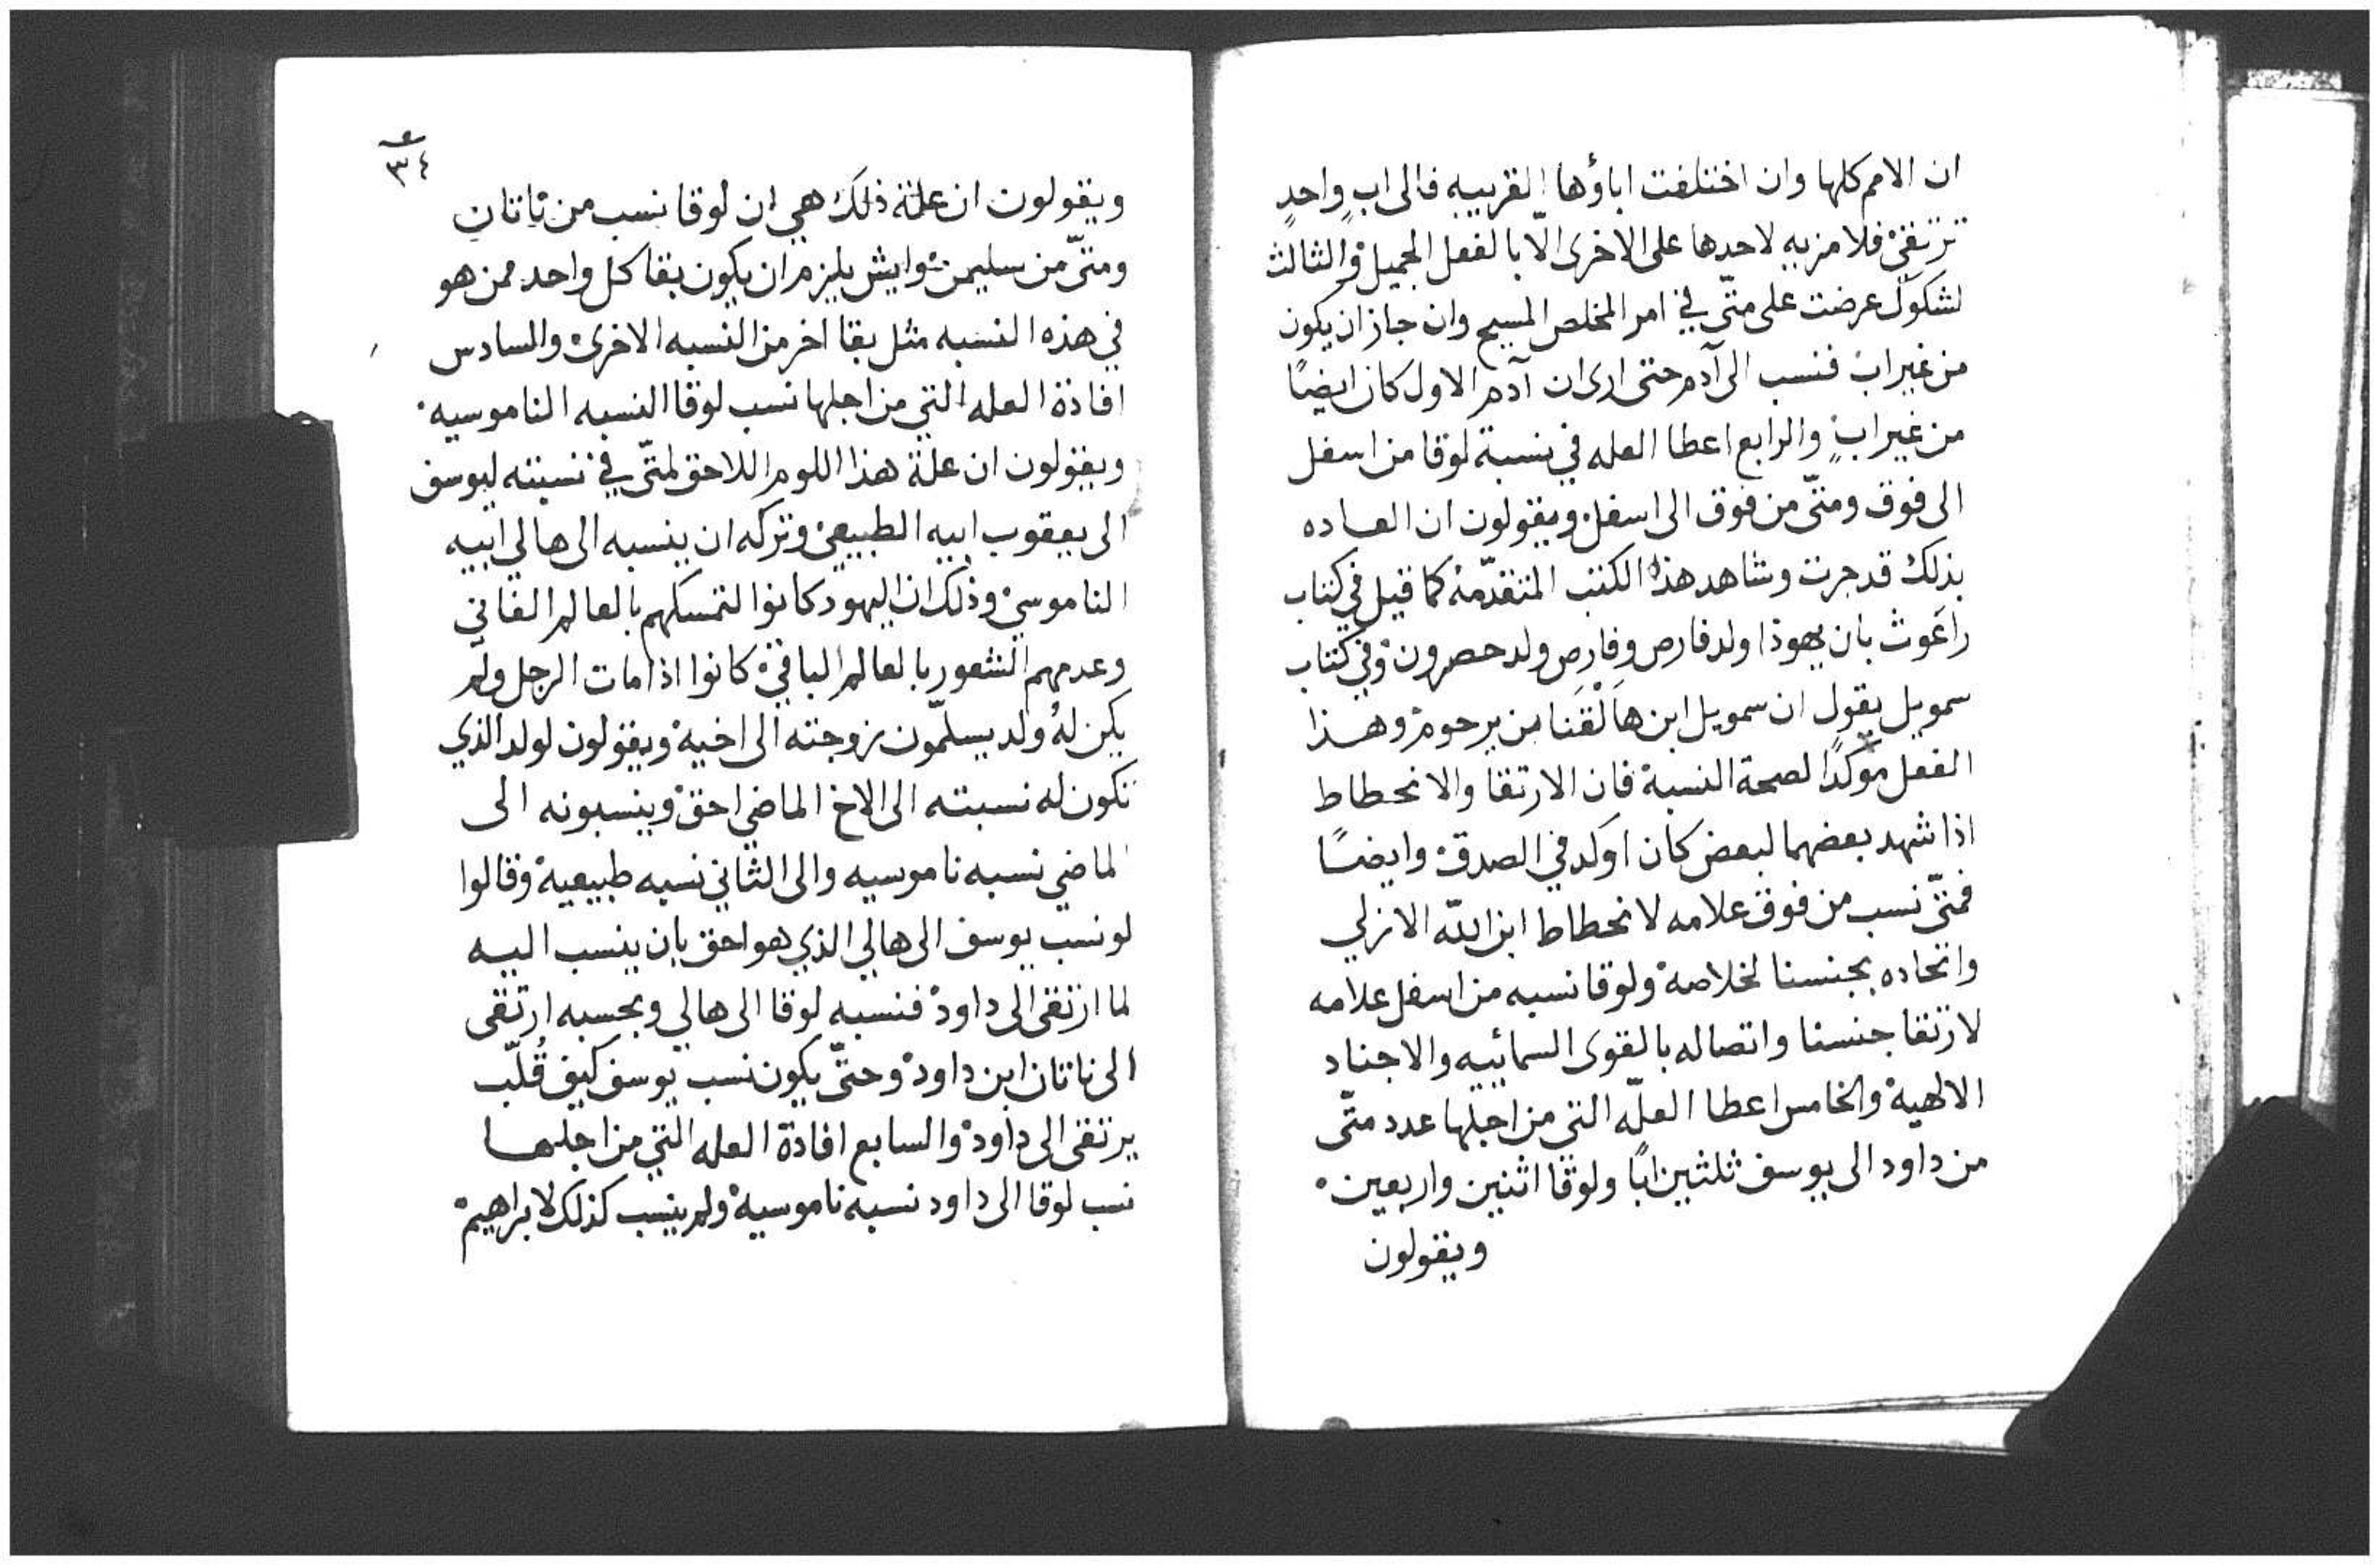 ان الامم كلها وان اختلفت اباؤها القريبه فالى ابٍ واحدٍ
ترتقي فلا مزيه لاحدها على الاخرى الّا بالفعل الجميل والثالث
لشكوك عرضت على متّى في امر المخلص المسيح وان جاز ان يكون
من غير اب فنسب الى آدم حتى ارى ان آدم الاول كان ايضًا
من غير ابٍ والرابع اعطا العله في نسبة لوقا من اسفل
الى فوق ومتّى من فوق الى اسفل ويقولون ان العاده
بذلك قد جرت وشاهد هذا الكتب المتقدّمه كما قيل في كتاب
راعوث بان يهوذا اولد فارص وفارص ولد حصرون وفي كتاب
سمويل يقول ان سمويل ابن هالْقَنا بن يرحوم وهذا
الفعل موكدًا لصحة النسبة فان الارتقا والانحطاط
اذا شهد بعضهما لبعض كان اوكد في الصدق وايضًا
فمتّى نسب من فوق علامه لانحطاط ابن اللّه الازلي
واتحاده بجنسنا لخلاصه ولوقا نسبه من اسفل علامه
لارتقا جنسنا واتصاله بالقوى السمائييه والاجناد
الالهية والخامس اعطا العلّه التي من اجلها عدد متّى
من داود الى يوسف ثلثين ابًا ولوقا اثنين واربعين
ويقولون
٣٤
ويقولون ان علة ذلك هي ان لوقا نسب من ناتان
ومتّى من سليمن وايش يلزم ان يكون بقا كل واحد ممن هو
في هذه النسبه مثل بقا اخر من النسبه الاخرى والسادس
افادة العله التي من اجلها نسب لوقا النسبه الناموسيه
ويقولون ان علة هذا اللوم اللاحق لمتّى في نسبته ليوسف
الى يعقوب ابيه الطبيعي وتركه ان ينسبه الى هالي ابيه
الناموسي وذلك ان اليهود كانوا لتمسكهم بالعالم الفاني
وعدمهم الشعور بالعالم الباقي كانوا اذا مات الرجل ولم
يكن لهُ ولد يسلّمون زوجته الى اخيه ويقولون لولد الذي
تكون له نسبته الى الاخ الماضي احق وينسبونه الى
الماضي نسبه ناموسيه والى الثاني نسبه طبيعية وقالوا
لو نسب يوسف الى هالي الذي هو احق بان ينسب اليه
لما ارتقى الى داود فنسبه لوقا الى هالي وبحسبه ارتقى
الى ناتان ابن داود وحتّى يكون نسب يوسف كيف قُلّب
يرتقى الى داود والسابع افادة العله التي من اجلها
نسب لوقا الى داود نسبه ناموسية ولم ينسب كذلك لابراهيم